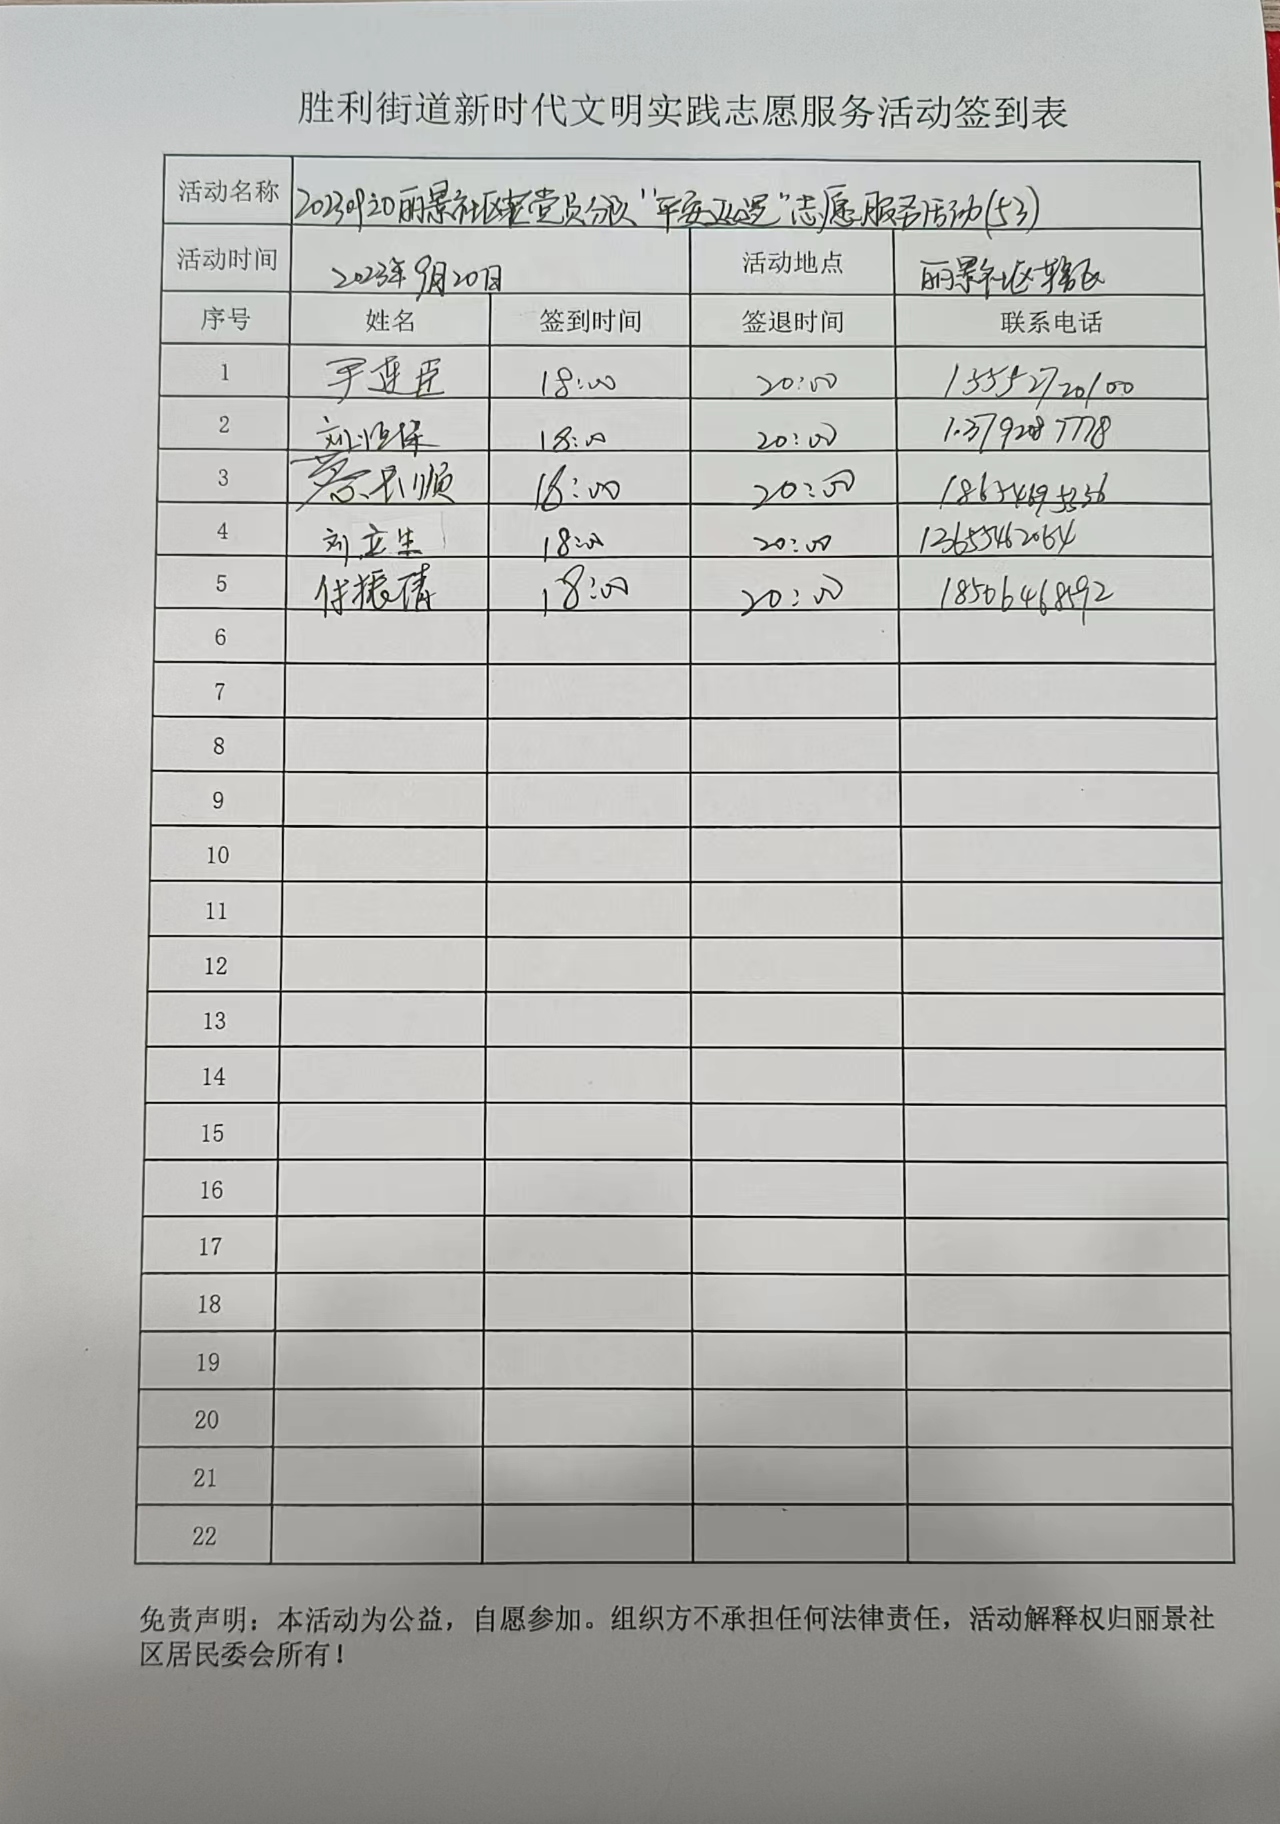 胜利街道新时代文明实践志愿服务活动签到表
活动名称 20230920丽景社区 党员分队“平安巡逻”志愿服务活动(53)
活动时间 2023年9月20日 活动地点 丽景社区辖区
序号 姓名 签到时间 签退时间 联系电话
1 于连臣 18:00 20:00 13552720100
2 刘恒保 18:00 20:00 13792087778
3 18:00 20:00
4 刘立生 18:00 20:00 13655462064
5 18:00 20:00 18506468592
6
7
8
9
10
11
12
13
14
15
16
17
18
19
20
21
22
免责声明：本活动为公益，自愿参加。组织方不承担任何法律责任，活动解释权归丽景社
区居民委会所有！